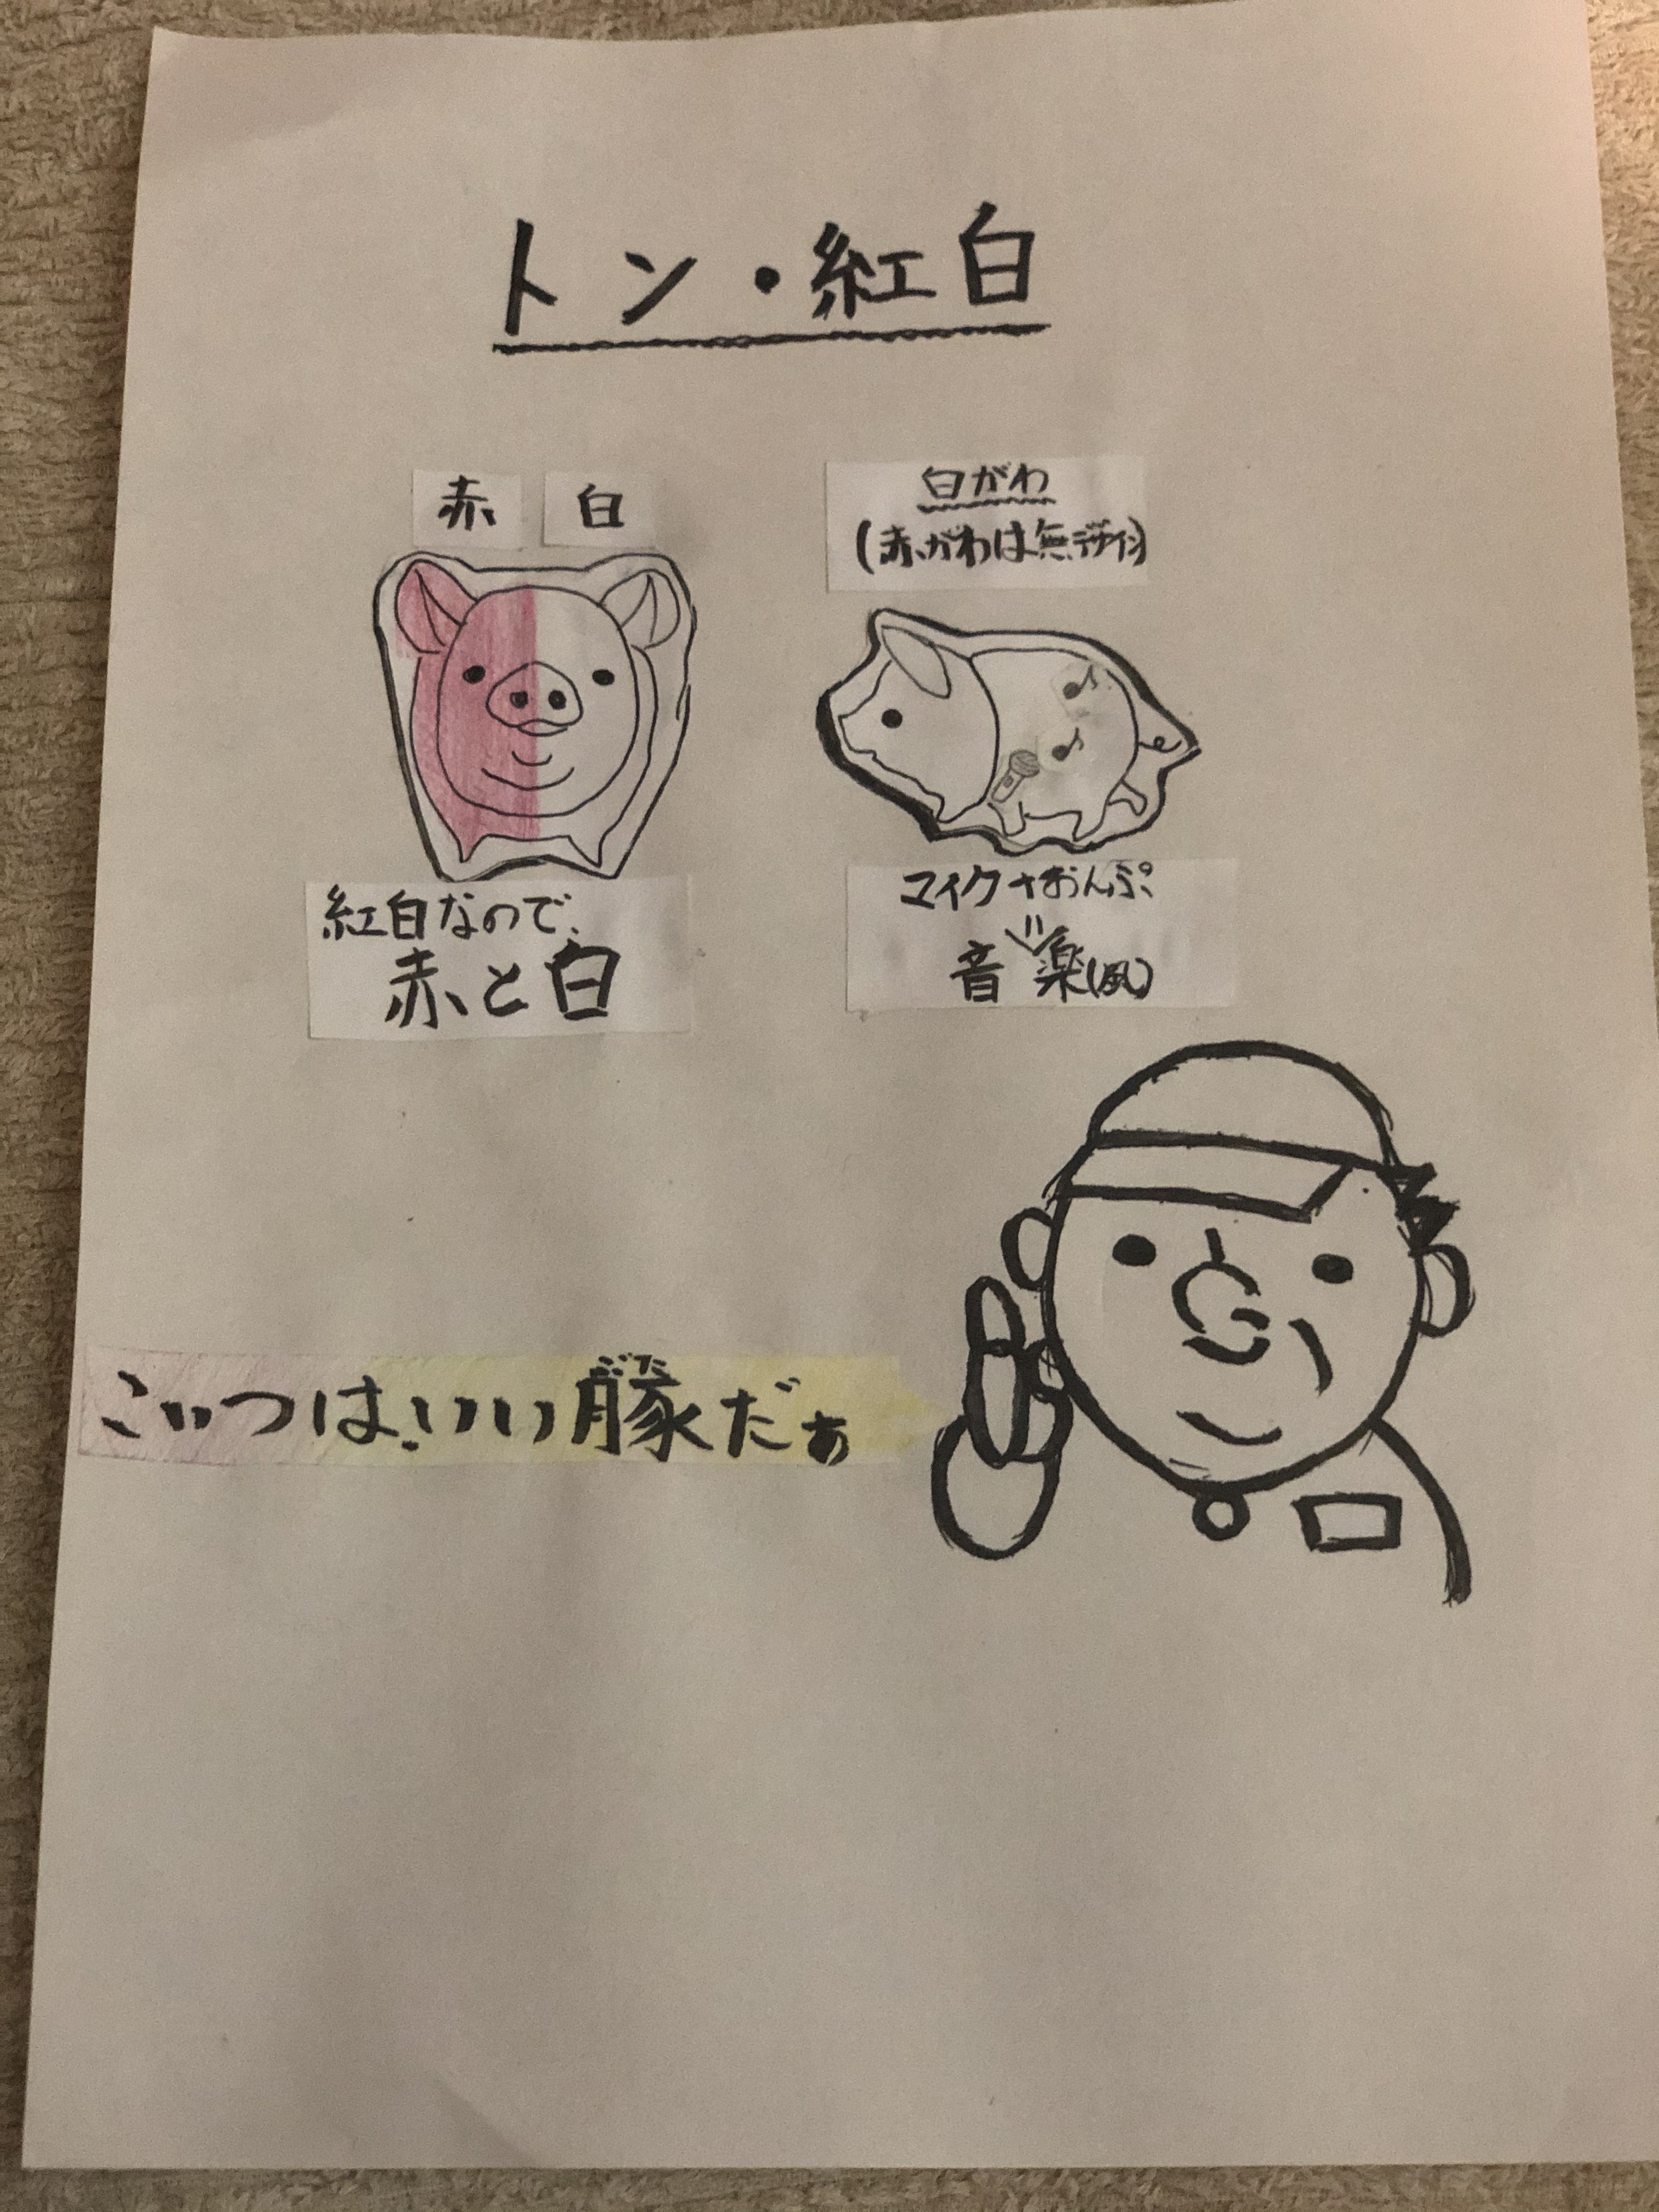 トン・紅白
赤
白
白がわ
(赤がわは無デザイン)
紅白なので、
赤と白
マイク+おんぷ
=
音楽(風)
こいつは、いい豚だぁ
ぶた